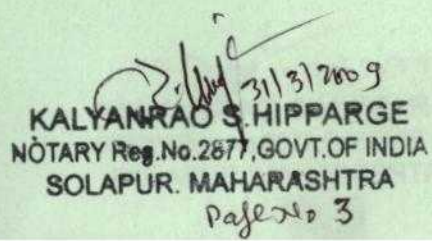 31/3/2009
KALYANRAO S. HIPPARGE
NOTARY Reg.No.2877,GOVT.OF INDIA
SOLAPUR. MAHARASHTRA
Page No 3